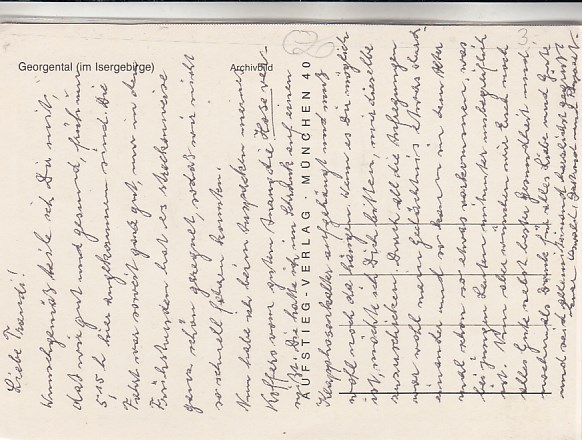 Georgental (im Isergebirge)
Archivbild
AUFSTIEG-VERLAG · MÜNCHEN 40
3
Liebe Traudi!
Wunschgemäß teile ich Dir mit,
dass wir gut und gesund, früh um
5.15 h hier angekommen sind. Die
Fahrt war soweit ganz gut, nur in den
Frühstunden hat es streckenweise
ganz schön geregnet, sodaß wir nicht
so schnell fahren konnten.
Nun habe ich beim Auspacken meines
Koffers vom guten Anzug die Hose ver-
mißt. Die hatte ich im Schrank auf einen
Klapphosenhalter aufgehängt und muß
wohl noch da hängen. Wenn es Dir möglich
ist, möchte ich Dich bitten, mir dieselbe
zuzuschicken. Durch all die Aufregungen
war wohl mein Gedächtnis etwas durch-
einander und so kann in dem Alter
mal schon so etwas vorkommen, was
bei jungen Leuten mitunter unbegreiflich
ist. Nun aber wünschen wir Euch noch
alles Gute nebst bester Gesundheit und
nochmals Dank für alles Liebe und Gute
und seid herzlichst gegrüßt